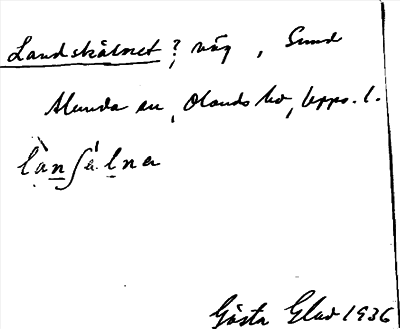 Landskälnet ?, väg, Sund
Alunda sn, Olands hd, Upps. l.
Gösta Glad 1936